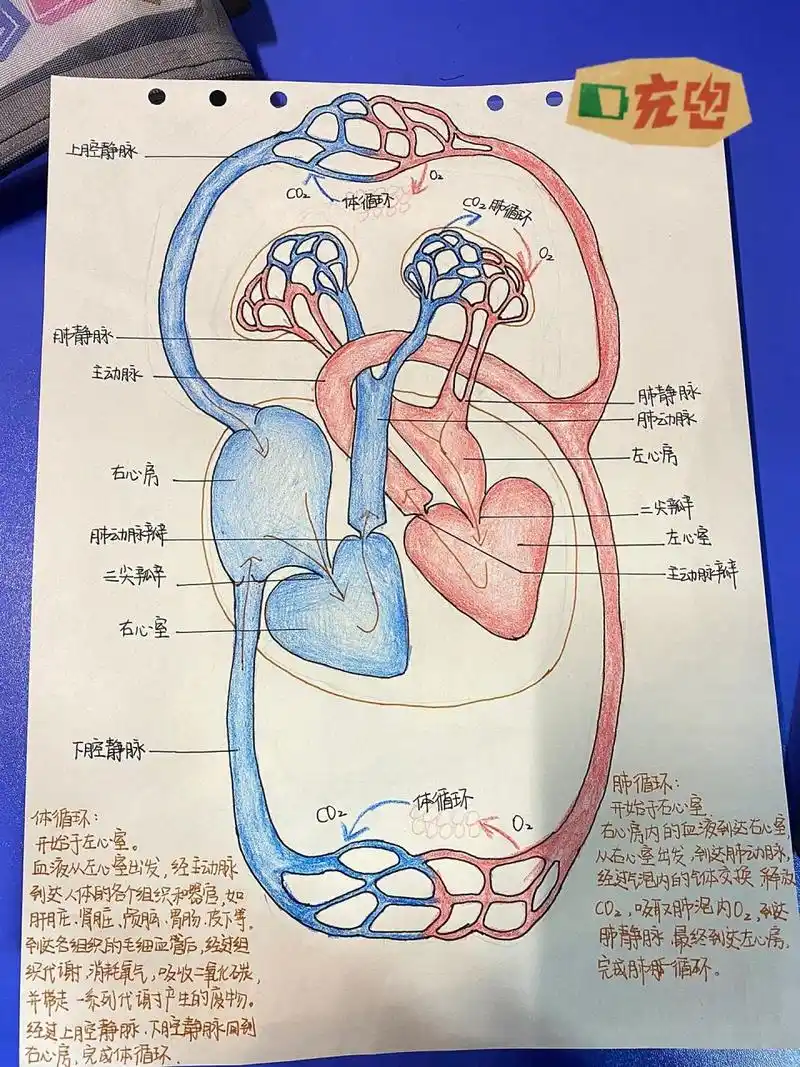 充电
上腔静脉
CO₂ 体循环 O₂
CO₂ 肺循环
O₂
肺静脉
主动脉
肺静脉
肺动脉
左心房
右心房
二尖瓣
肺动脉瓣
左心室
三尖瓣
主动脉瓣
右心室
下腔静脉
CO₂ 体循环 O₂
体循环:
开始于左心室。
血液从左心室出发,经主动脉
到达人体的各个组织和器官,如
肝脏、肾脏、颅脑、胃肠、皮下等。
到达各组织的毛细血管后,经过组
织代谢,消耗氧气,吸收二氧化碳,
并带走一系列代谢产生的废物。
经过上腔静脉、下腔静脉回到
右心房,完成体循环.
肺循环:
开始于右心室
右心房内的血液到达右心室,
从右心室出发,到达肺动脉,
经过气泡内的气体交换 释放
CO₂,吸取肺泡内O₂,到达
肺静脉,最终到达左心房,
完成肺循环。